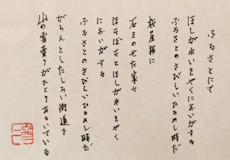 ふるさとにて
ほしがれいをやくにおいがする
ふるさとのさびしいひるめし時だ
板屋根に
石をのせた家々
ほそぼそとほしがれいをやく
においがする
ふるさとのさびしいひるめし時だ
がらんとしたしろい街道を
山の雪売りがひとりあるいている